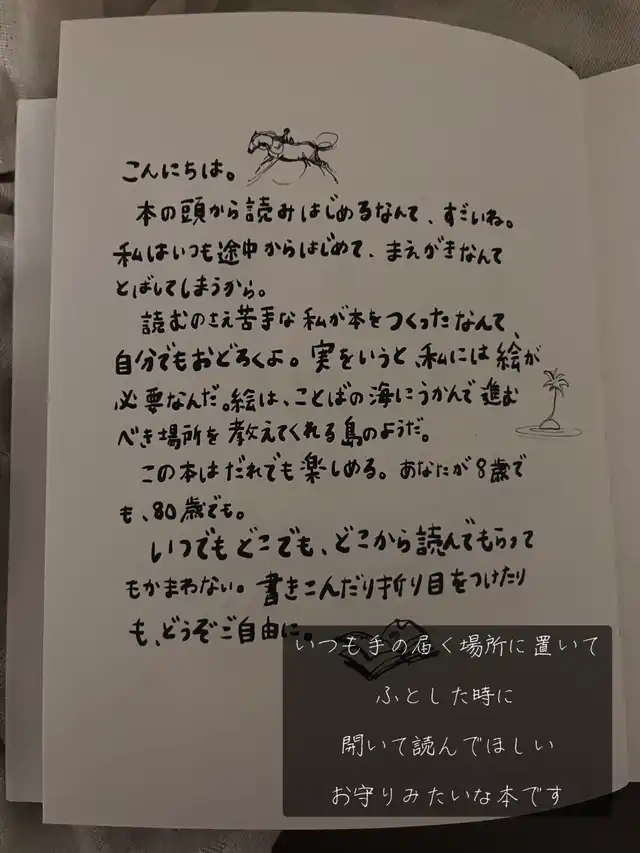 こんにちは。
本の頭から読みはじめるなんて、すごいね。
私はいつも途中からはじめて、まえがきなんて
とばしてしまうから。
読むのさえ苦手な私が本をつくったなんて、
自分でもおどろくよ。実をいうと、私には絵が
必要なんだ。絵は、ことばの海にうかんで進む
べき場所を教えてくれる島のようだ。
この本はだれでも楽しめる。あなたが8歳で
も、80歳でも。
いつでもどこでも、どこから読んでもらって
もかまわない。書きこんだり折り目をつけたり
も、どうぞご自由に。
いつも手の届く場所に置いて
ふとした時に
開いて読んでほしい
お守りみたいな本です